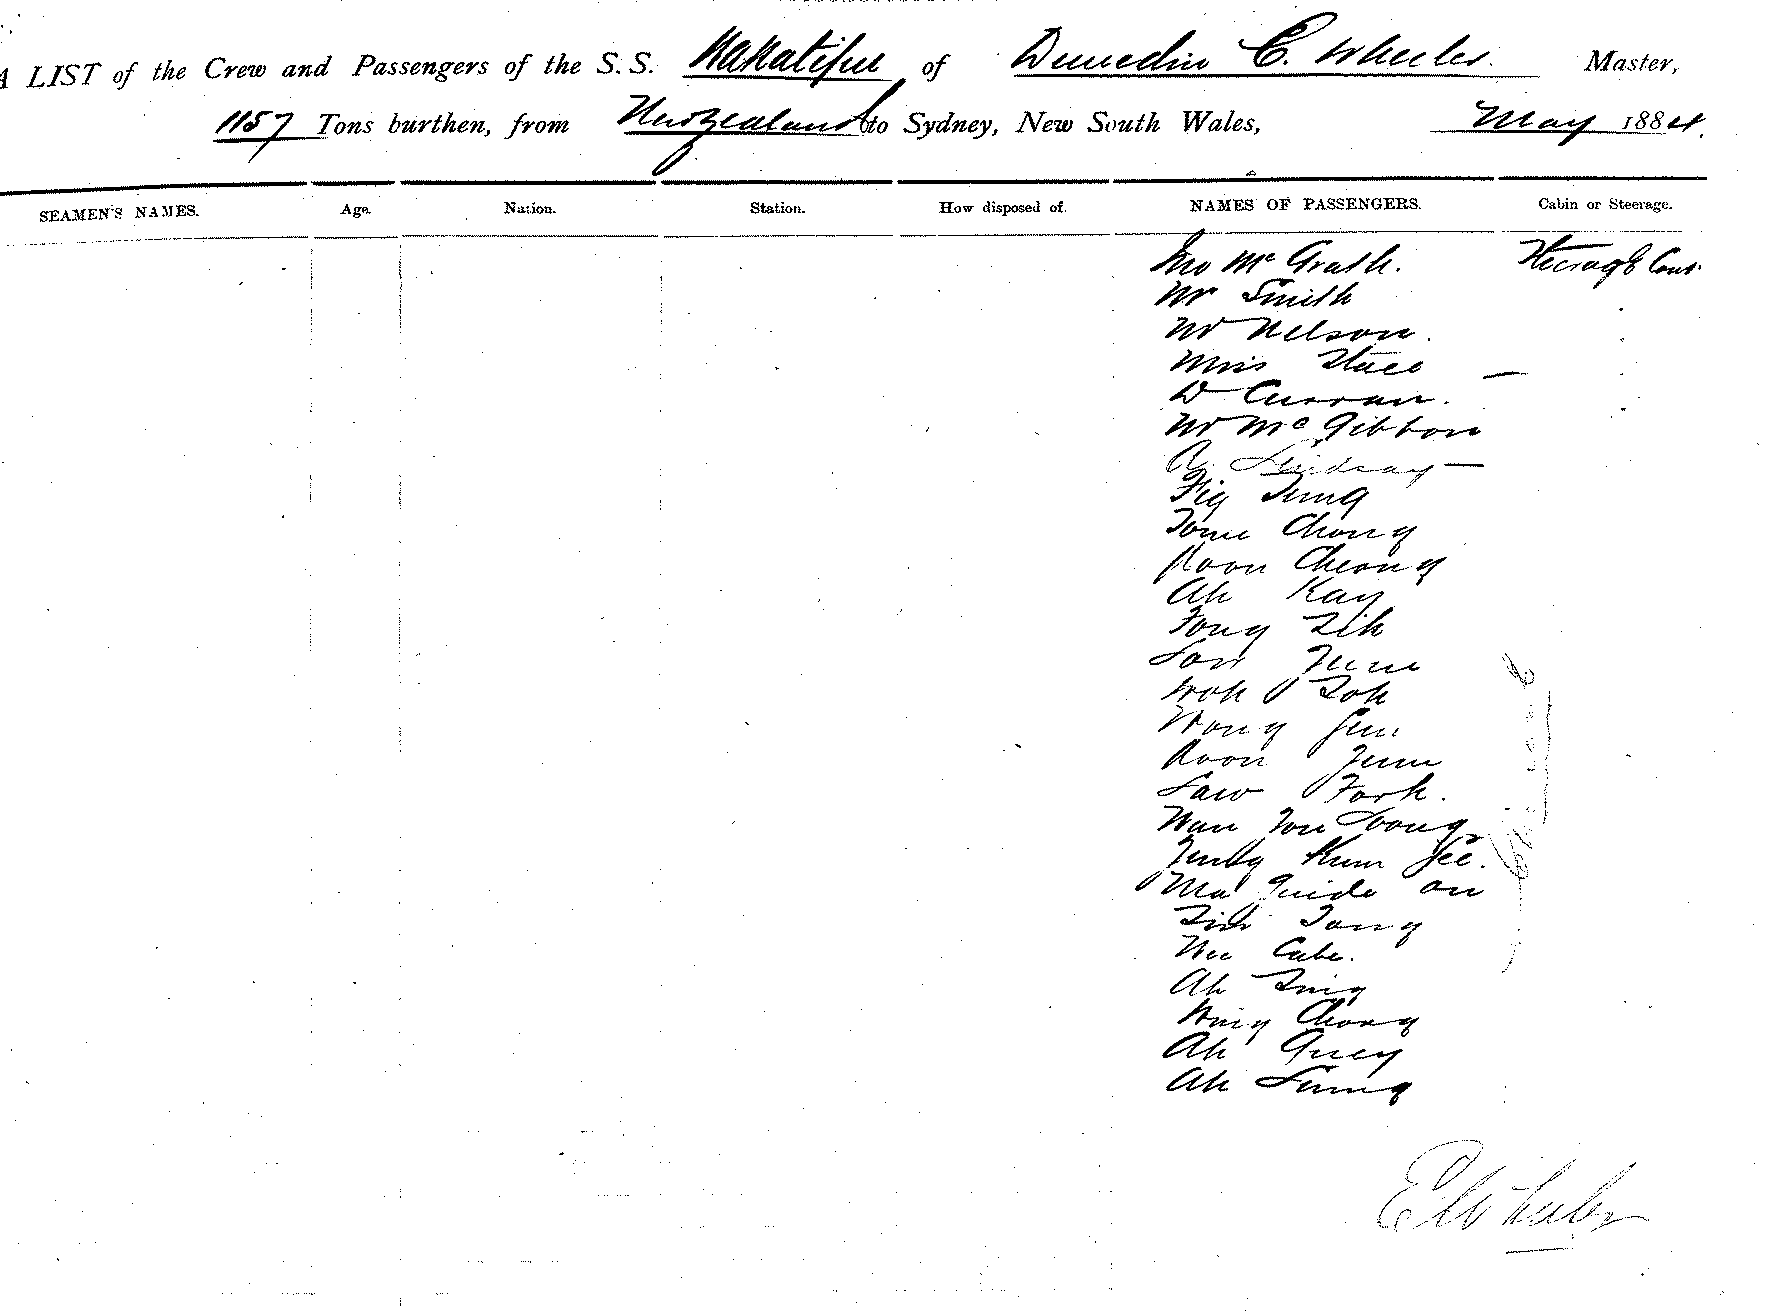 A LIST of the Crew and Passengers of the S.S. Wakatipu of Dunedin E. Wheeler. Master,
1157 Tons burthen, from New Zealand to Sydney, New South Wales, May 1884.
SEAMEN'S NAMES. Age. Nation. Station. How disposed of. NAMES OF PASSENGERS. Cabin or Steerage.
Jno McGrath. Steerage Cont.
Mr Smith
Mr Nelson.
Miss Stace
D Curran.
Mr McGibbon
Lindsay
Fig Tung
Tome Chong
Koon Cheong
Ah Kay
Fong Tik
June
Wok Tok
Wong Gun
Koon June
Law Fork.
Wan Loong
Kum Gee.
Ma Guide on
Tong
Wee Cube.
Ah Ting
Wing Chong
Ah Quey
Ah Lung
Chinese
E Wheeler